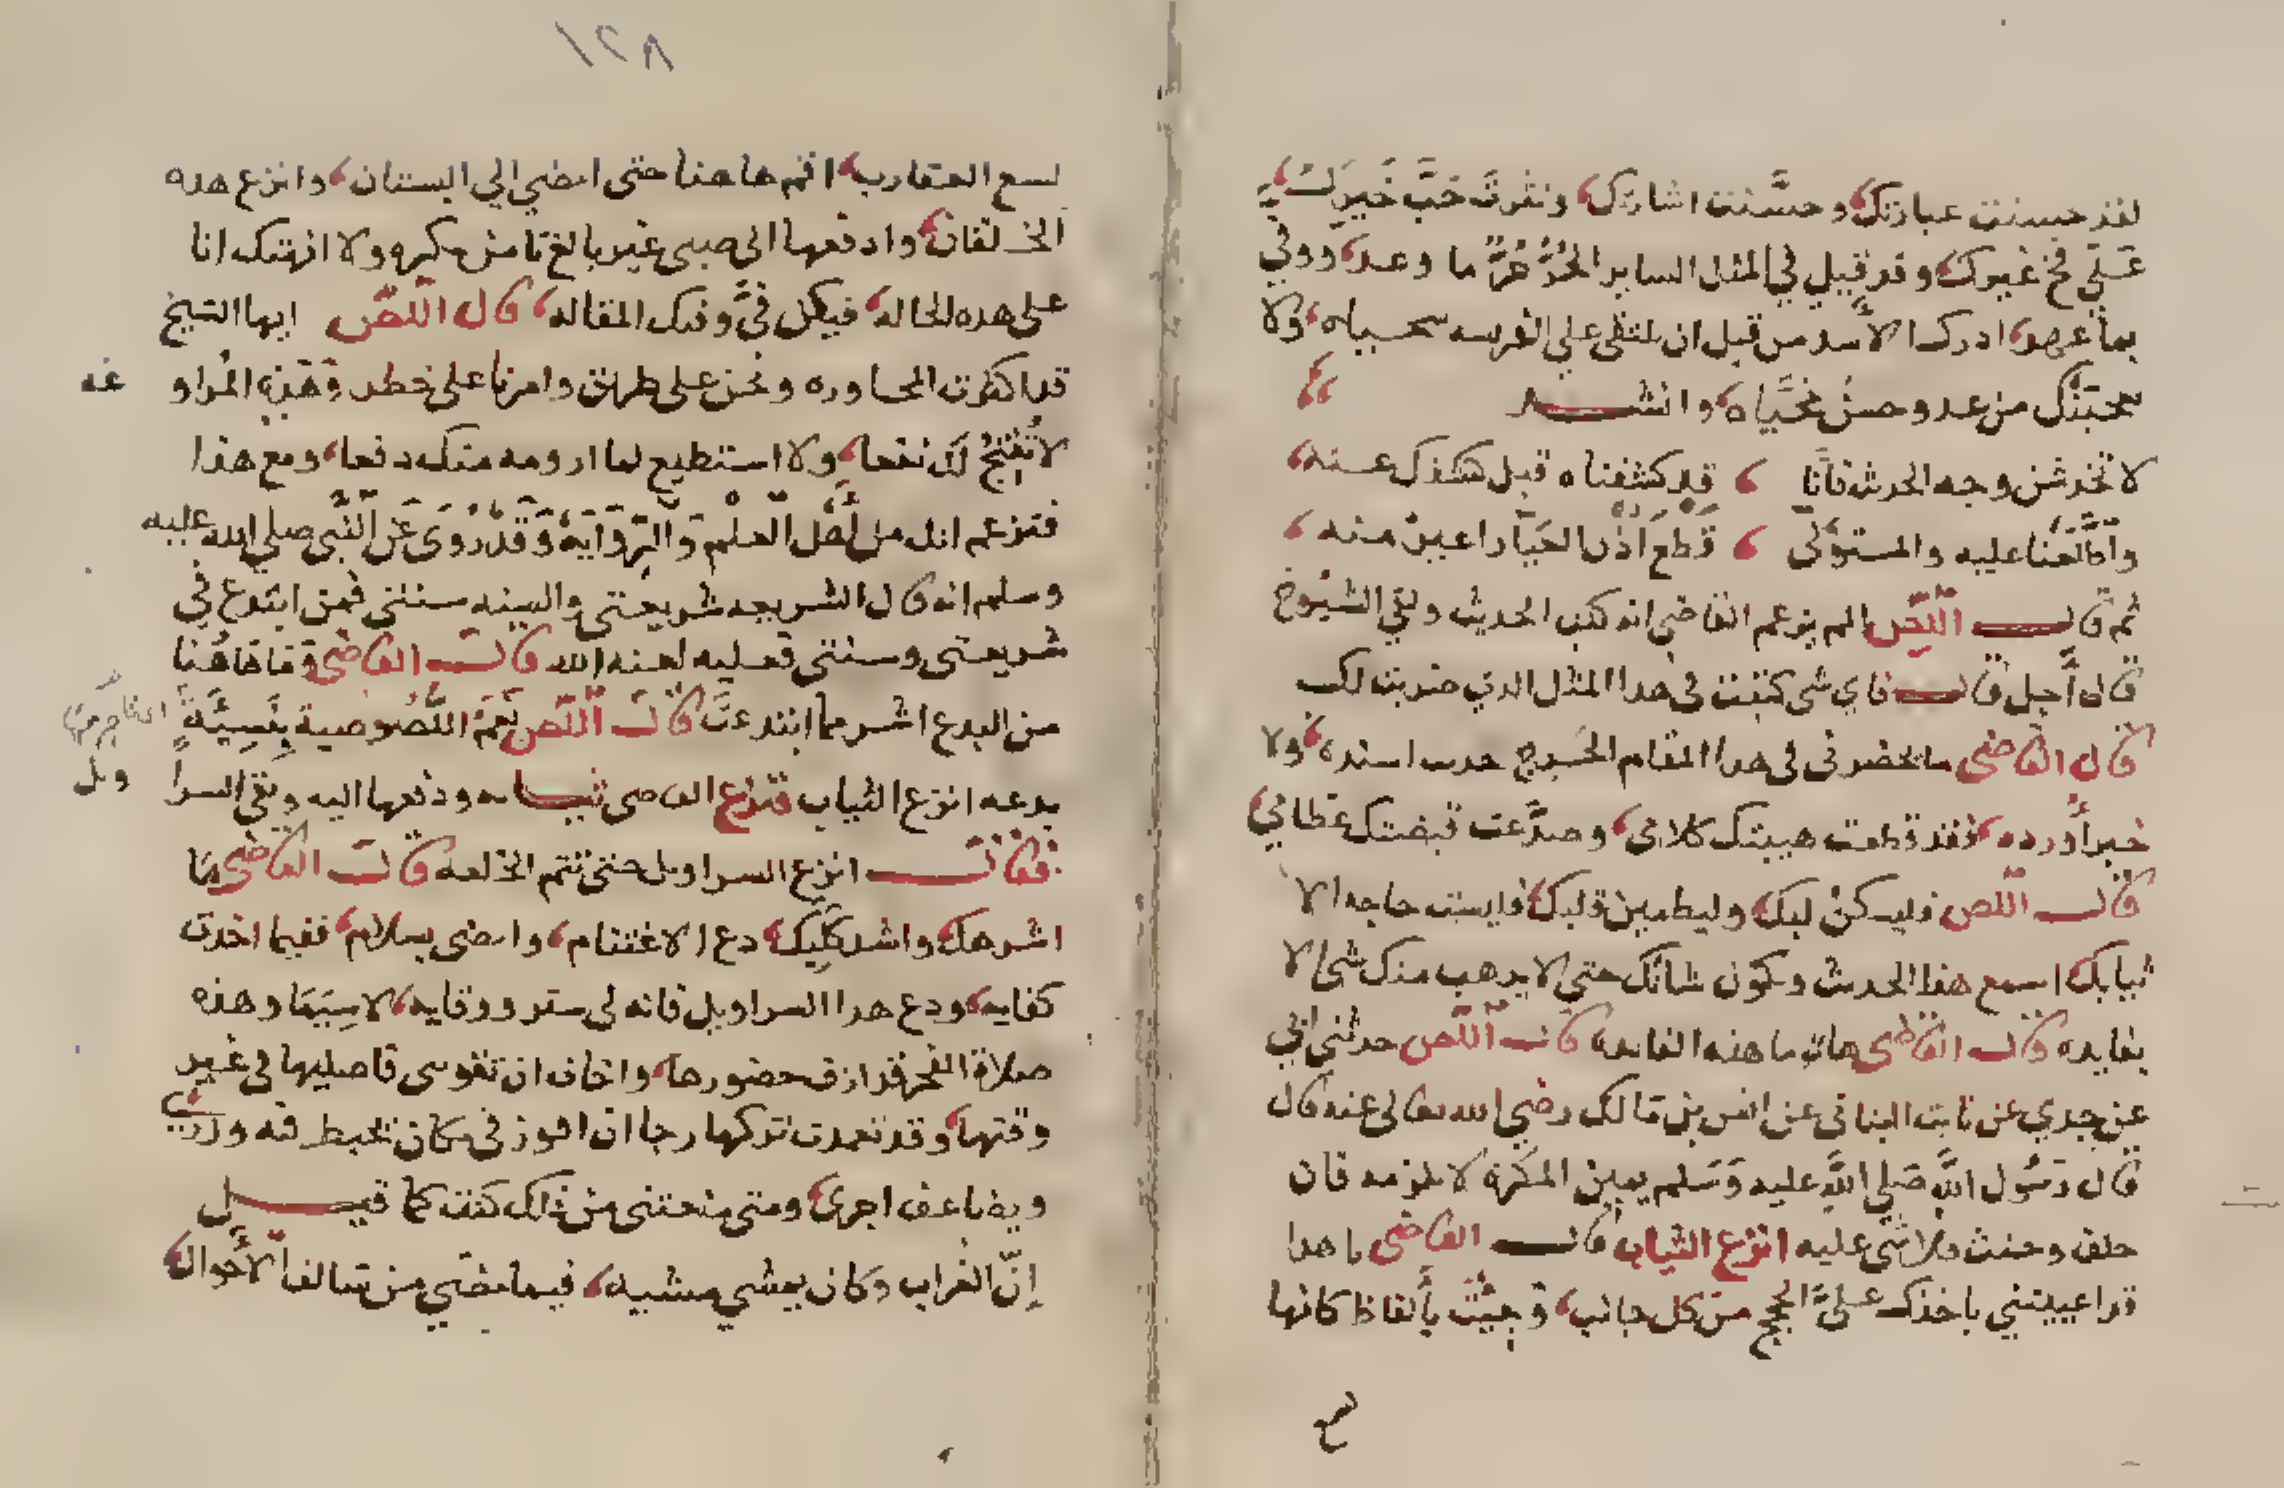 لقد حسنت عبارتك، وحسّنت اشارتك، ونثرت حَبَّ خَيرِكَ
عَلَي فخ غيرك، وقد قيل في المثل الساير الحُرُّ حُرٌّ ما وعد، ووفي
بما عهد، ادركـ الاسد من قبل ان يلتقى علي الفريسه لحيياه، ولا
من عدو حسنُ مُحَيَّاه، وانشـــد
لا تخدشن وجه الحدث فانّا ، قد كشفناه قبل كشفك عنه،
واطّلَعْنا عليه والمستولى ، قَطع اَذْن العَيّار اعين منه ،
ثم قالـــ اللّص الم يزعم القاضي انه كتب الحديث ولقي الشيوخ
قال أجل قالـــ فاي شي كتبت في هدا المثل الدي ضربت لك
قال القاضي ما يحضرنى فى هدا المقام الحَرِج حدىث اسنده، ولا
خبرا أُورده، فقد قطعت هيبتك كلامى، وصدَّعت قبضتك عظامي
قالـــ اللّص فليسكنْ لبك، وليطمين قلبك، فليست حاجه الا
ثيابك اسمع هذا الحدىث وتكوّن شانك حتي لا يدهب منك شي الا
بفايده قال القاضى هات ما هذه الفايده قالـــ اللّص حدثني ابي
عن جدي عن ثابت البنانى عن انس بن مالك رضي الله تعالى عنه قال
قال رسُول اللّه صَلي اللّه عليه وَسَلم يمين المكرَه لا تلزمه فان
حلف وحنث فلا شى عليه انزع الثياب قالـــ القاضى يا هدا
قد اعييتني باخذك علىَّ الحجج من كل جانب، وجيئتَ بألفاظ كانها
١٢٨
لسع العقارب، اقم هاهنا حتى امضي الي البستان، وانزع هده
الخلقان، وادفعها الى صبى غير بالغ تامن مكره ولا انهتك انا
على هده الحاله، فيكمل فىَّ وفيك المقاله، قال اللّص ايها الشيخ
قد اكثرت المحاوره ونحن على طريق وامرنا على خطر وَهَذِهِ المُراو غه
لا تُنْتِجُ لك نفعا، ولا استطيع لما ارومه منك دفعا، ومع هذا
فتزعم انك من أَهْل العلْم وَالرِّوَايَة وَقَدْ رُوِىَ عَنِ النَّبي صلي الله عليه
وسلم انه قال الشريعه شريعتى والسنه سنتى فمن ابتدع في
شريعتى وسنتى فعليه لعنه الله قالـــ القاضى وَمَا هَاهُنا
من البدع اشر مما ابتدعتَ قالـــ اللّص نَعَم اللّصُوصية بِنَسِيَّة
بدعه انزع الثياب فنزع القاضى ثيـــابه ودفعها اليه وبقى السرا ويل
فقالـــ انزع السراويل حتى تتم الخلعه قالـــ القاضى ما
اشرهك، واشد كَلِبَك، دع الاغتنام، وامضى بسلام، ففيما اخذت
كفايه، ودع هدا السراويل فانه لى ستر ووقايه، لا سِيَمَا وهذه
صلاة الفجر قد ازف حضورها، واخاف ان تفوسى فاصليها فى غير
وقتها، وقد تعمدت تركها رجا ان افوز فى مكان يحبط فيه وزرى
ويضاعف اجرى، ومتى منعتنى من ذلك كنت كما قيـــل
اِنّ الغراب وكان يمشي مشيه، فيما مضي من سالف الأحوال،